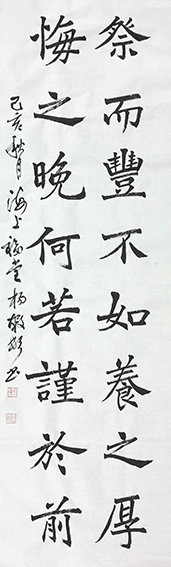 祭而豐不如養之厚
悔之晚何若謹於前
己亥秋月海上